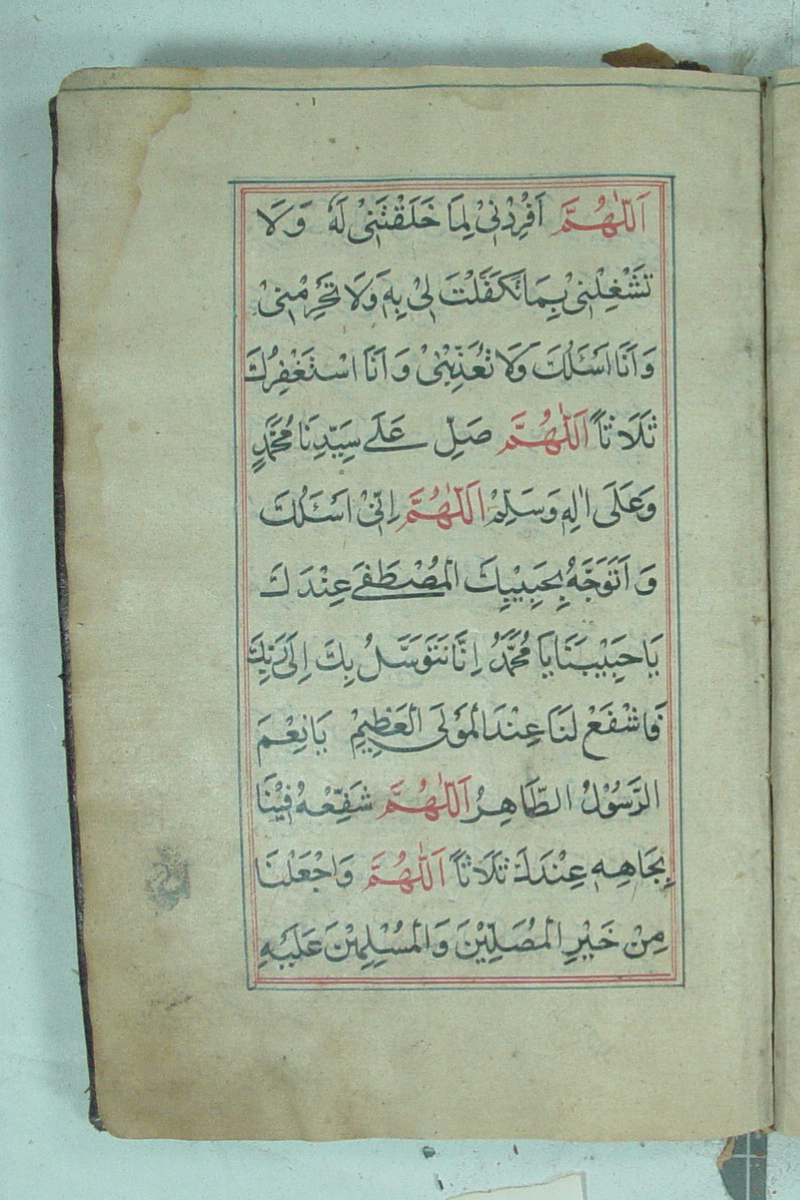 اَللّٰهُمَّ اَفْرِدْنِيْ لِمَا خَلَقْتَنِيْ لَهُ وَلَا
تَشْغِلْنِيْ بِمَا تَكَفَّلْتَ لِيْ بِهِ وَلَا تَحْرِمْنِيْ
وَاَنَا اَسْئَلُكَ وَلَا تُعَذِّبْنِيْ وَاَنَا اسْتَغْفِرُكَ
ثَلَاثاً اَللّٰهُمَّ صَلِّ عَلَى سَيِّدِنَا مُحَمَّدٍ
وَعَلَى اٰلِهِ وَسَلِّمْ اَللّٰهُمَّ اِنِّيْ اَسْئَلُكَ
وَاَتَوَجَّهُ بِحَبِيْبِكَ الْمُصْطَفَى عِنْدَكَ
يَا حَبِيْبَنَا يَا مُحَمَّدُ اِنَّا نَتَوَسَّلُ بِكَ اِلَى رَبِّكَ
فَاشْفَعْ لَنَا عِنْدَ الْمَوْلَى الْعَظِيْمِ يَا نِعْمَ
الرَّسُوْلُ الطَّاهِرُ اَللّٰهُمَّ شَفِّعْهُ فِيْنَا
بِجَاهِهِ عِنْدَكَ ثَلَاثاً اَللّٰهُمَّ وَاجْعَلْنَا
مِنْ خَيْرِ الْمُصَلِّيْنَ وَالْمُسْلِمِيْنَ عَلَيْهِ